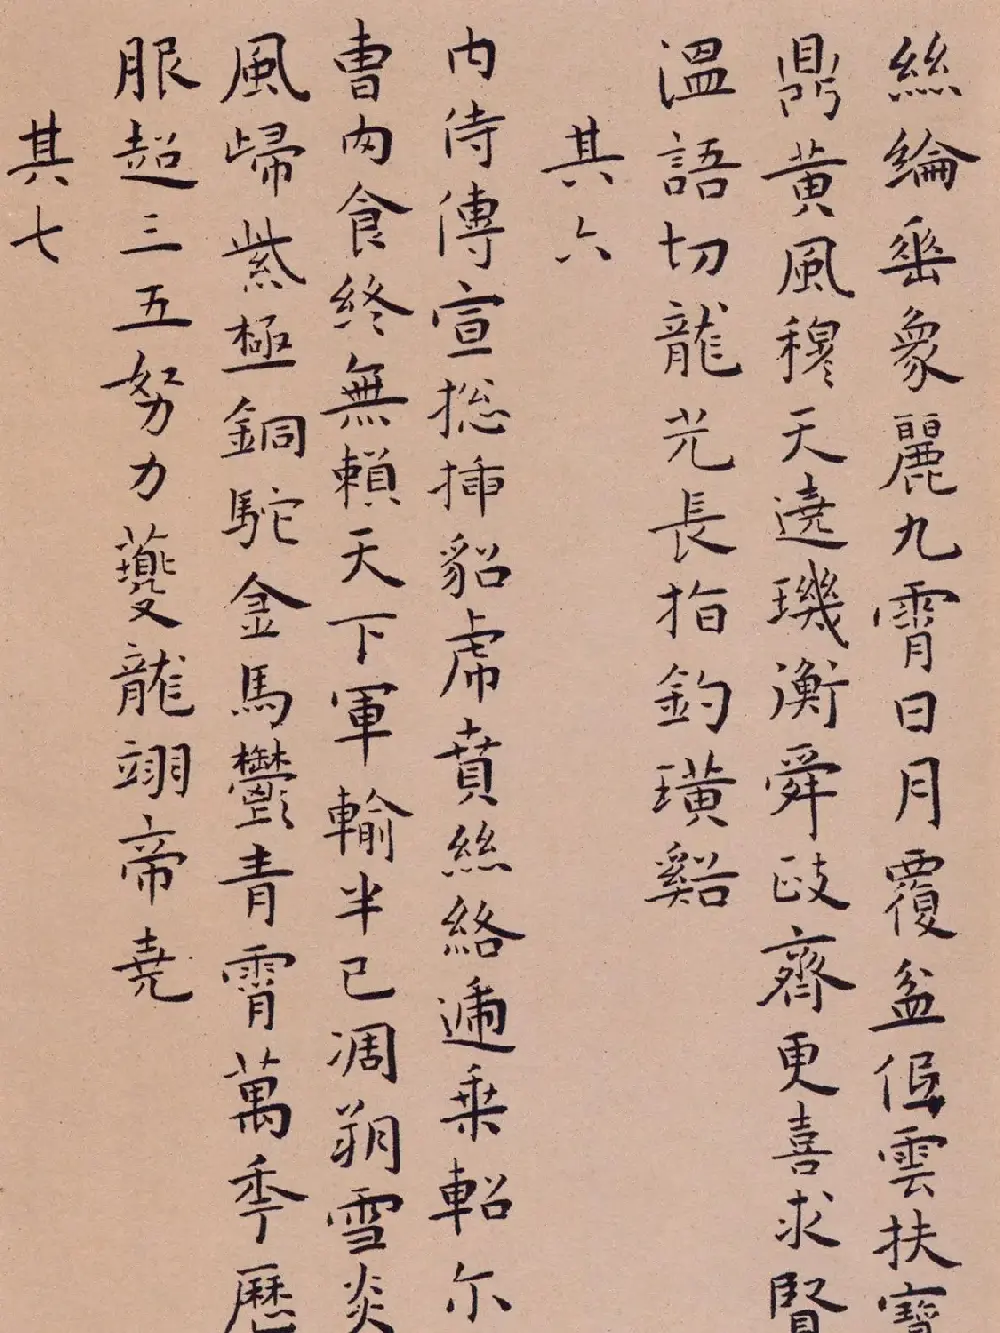 絲綸垂象麗九霄日月覆盆低雲扶寶
鼎黃風穆天遶璣衡舜政齊更喜求賢
溫語切龍光長指釣璜谿
其六
內侍傳宣摠插貂虎賁絲絡遞乘軺尔
曹肉食終無賴天下軍輸半已凋朔雪炎
風歸紫極銅駝金馬鬱青霄萬秊歷
服超三五努力夔龍翊帝堯
其七